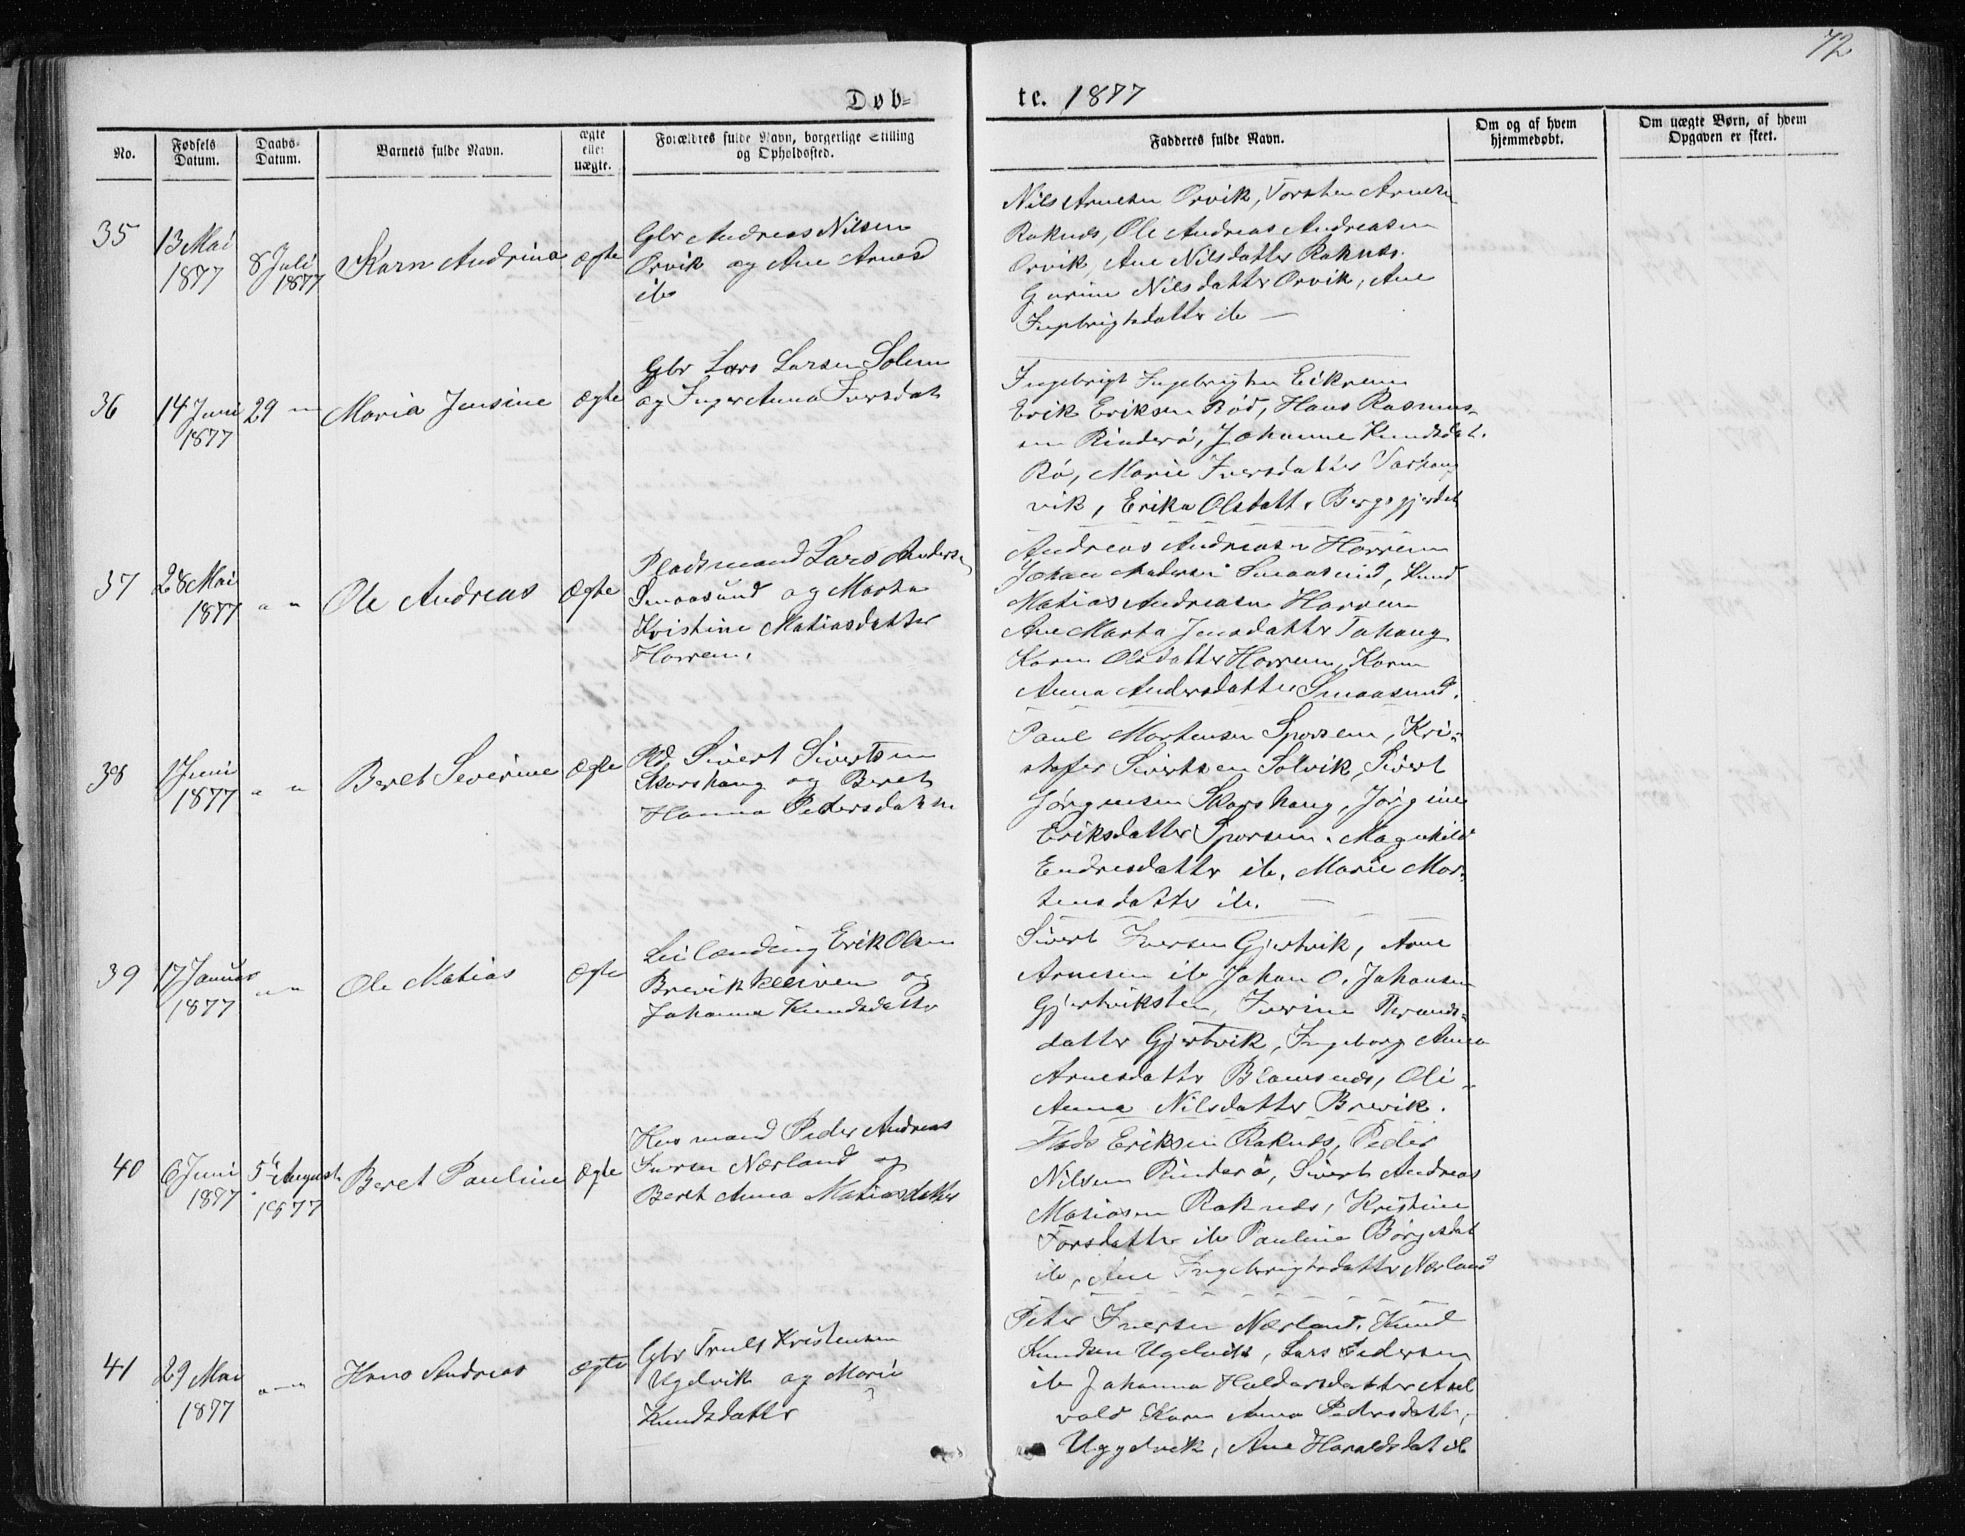 72
Døb-
te. 1877
No.
Fødsels
Datum.
Daabs-
Datum.
Barnets fulde Navn.
ægte
eller
uægte.
Forældres fulde Navn, borgerlige Stilling
og Opholdssted.
Fadderes fulde Navn.
Om og af hvem
hjemmedøbt.
Om uægte Børn, af hvem
Opgaven er skeet.
35
13 Mai
1877
8 Juli
1877
Karn Andrina
ægte
Gbr Andreas Nilsen
Orvik og Ane Arnesd
ib
Nils Arnesen Orvik, Torsten Arnesen
Raknes, Ole Andreas Andreasen
Orvik, Ane Nilsdatter Raknes.
Gurine Nilsdatter Orvik, Ane
Ingebrigtsdatter ib —
36
14 Juni
1877
29 "
Maria Jensine
ægte
Gbr Lars Larsen Solem
og Inger Anna Iversdat
Ingebrigt Ingebrigtsen Eikrem
Erik Eriksen Rød, Hans Rasmus-
sen Rinderø, Johanne Knudsdat.
Rø, Marie Iversdatter Varhaug
vik, Erika Olsdatt. Bergsgjerdet
37
28 Mai
1877
" "
Ole Andreas
Ægte
Pladsmand Lars Anders.
Smaasund og Marta
Kristine Matiasdatter
Horrem.
Andreas Andreasen Horrem
Johan Andersen Smaasund, Knud
Matias Andreasen Horrem
Ane Marta Jensdatter Tahaug
Karen Olsdatter Horrem, Karen
Anna Andersdatter Smaasund.
38
1 Juni
1877
" "
Beret Severine
Ægte
Pld Sivert Sivertsen
Skarshaug og Beret
Hanna Pedersdatter
Paul Mortensen Sporsem, Kri-
stofer Sivertsen Solvik, Sivert
Jørgensen Skarshaug, Jørgine
Eriksdatter Sporsem. Magnhild
Endresdatter ib. Marie Mor-
tensdatter ib. —
39
17 Januar
1877
" "
Ole Matias
Ægte
Leilænding Erik Olsen
Brevik Kleiven og
Johanna Knudsdatter
Sivert Iversen Gjertvik, Arne
Arnesen ib Johan O. Johansen
Gjertviksten, Iverine Tronds-
datter Gjertvik, Ingeborg Anna
Arnesdatter Blamsnes, Oli-
Anna Nilsdatter Brevik.
40
6 Juni
1877
5te August
1877
Beret Pauline
Ægte
Husmand Peder Andreas
Iversen Nærland og
Beret Anna Matiasdatter
Mads Eriksen Raknes, Peder
Nilsen Rinderø, Sivert Andreas
Matiasen Raknes, Kristine
Torsdatter ib Pauline Børgesdat
ib, Ane Ingebrigtsdatter Nærland
41
29 Mai
1877
" "
Hans Andreas
ægte
Gbr Truls Kristensen
Ugelvik og Marie
Knudsdatter
Peter Iversen Nærland. Knud
Knudsen Ugelvik, Lars Pedersen
ib Johanna Haldorsdatter Axel
vold Karen Anna Pedersdatt.
Uggelvik, Ane Haraldsdat ib